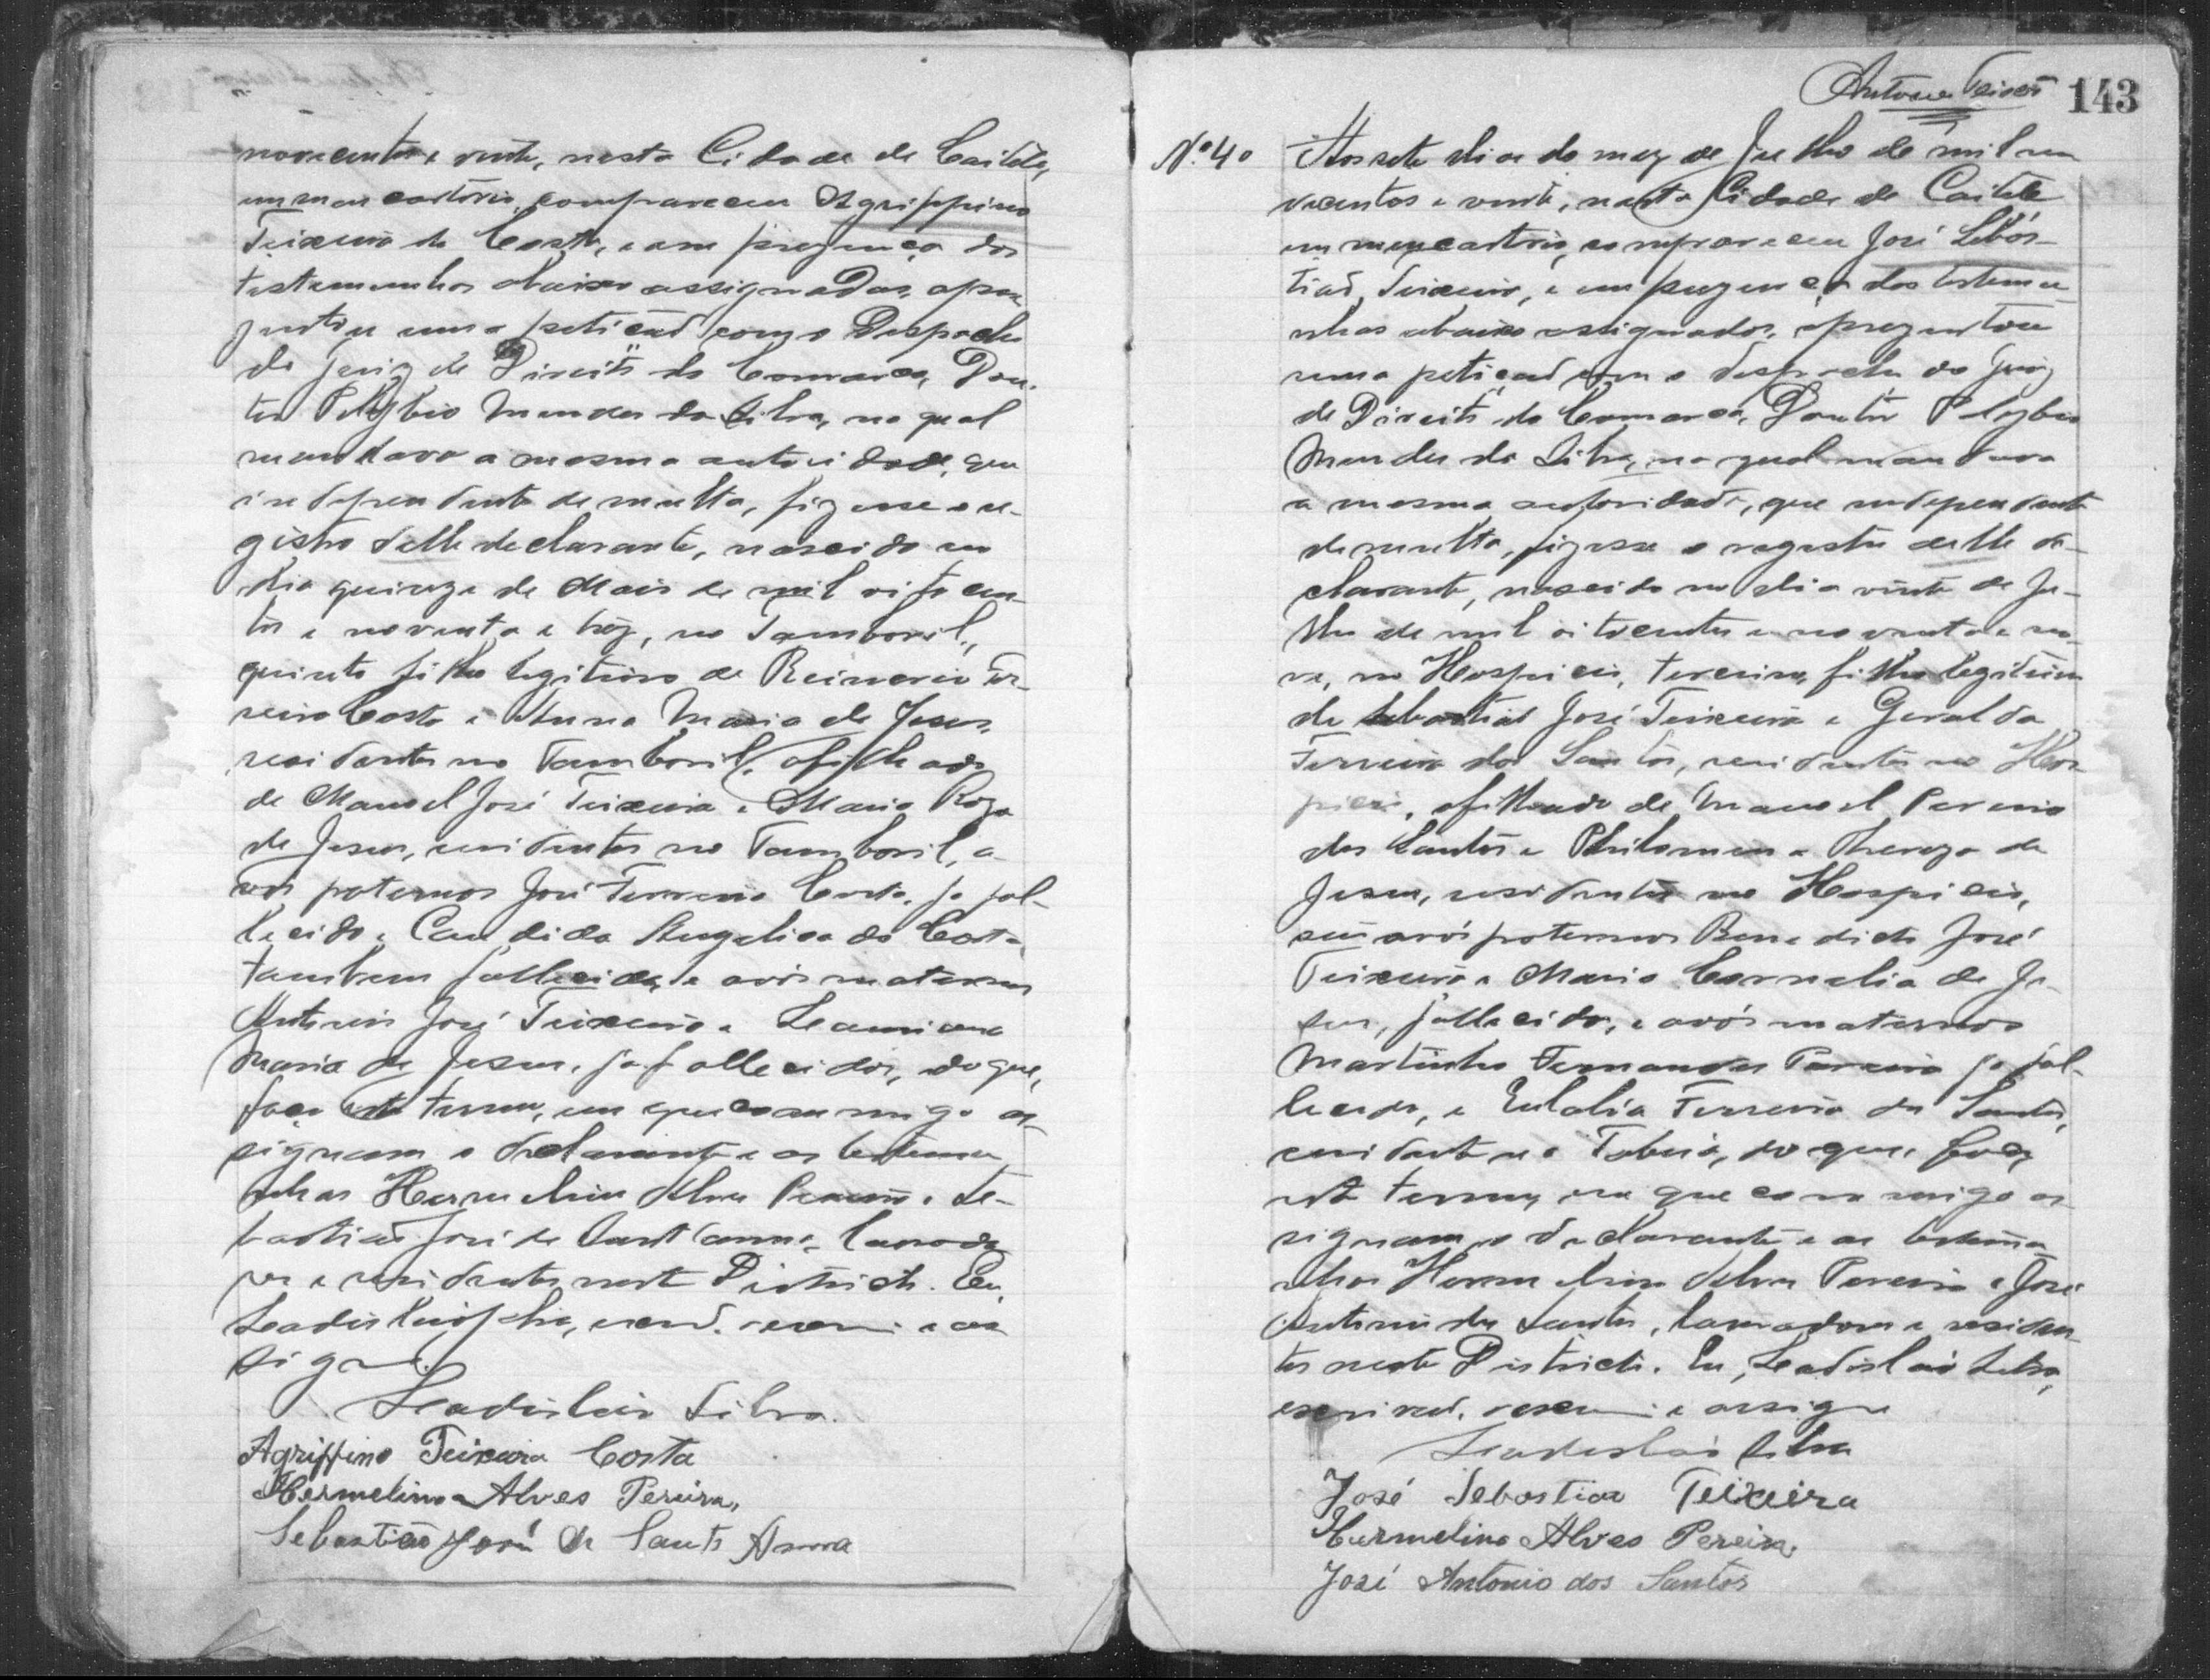 novecentos e vinte, nesta Cidade de Caiteté,
em meu cartorio, compareceu Agrippino
Teixeira da Costa, e em prezença das
testemunhas abaixo assignadas, apre-
zentou uma petição com o Despacho
do Juiz de Direito da Comarca, Dou-
tor Polybio Mendes da Silva, no qual
mandava a mesma autoridade, que
independente de multa, fizesse o re-
gistro delle declarante, nascido no
dia quinze de Maio de mil oitocen-
tos e noventa e trez, no Tamboril,
quinto filho legitimo de Reinerio Fer-
reira Costa e Anna Maria de Jesus,
residentes no Tamboril, afilhado
de Manoel José Teixeira e Maria Roza
de Jesus, residentes no Tamboril, a-
vós paternos José Ferreira Costa, ja fal-
lecido e Candida Angelica da Costa
tambem fallecida, e avós maternos
Antonio José Teixeira e
Maria de Jesus, ja fallecidos, do que,
faço este termo, em que commigo as-
signam o declarante e as testemu-
nhas Hermelino Alves Pereira e Se-
bastião José de Sant'Anna, lavrado-
res e residentes neste Districto. Eu,
Leadislau Silva, escrivão, escrevi e as-
signo.
Leadislau Silva.
Agrippino Teixeira Costa
Hermelino Alves Pereira,
Sebastião José de Santa Anna
Antonio Teixeira
143
Nº 40
Aos sete dias do mez de Julho de mil no-
vecentos e vinte, nesta Cidade de Caiteté
em meu cartorio, compareceu José Sebas-
tião Teixeira, e em prezença das testemu-
nhas abaixo assignadas, aprezentou
uma petição com o despacho do Juiz
de Direito da Comarca, Doutor Polybio
Mendes da Silva, no qual mandava
a mesma autoridade, que independente
de multa, fizesse o registro delle de-
clarante, nascido no dia vinte de Ju-
lho de mil oitocentos e noventa e no-
ve, no Hospicio, terceiro filho legitimo
de Sebastião José Teixeira e Geralda
Ferreira dos Santos, residentes no Hos-
picio, afilhado de Manoel Pereira
dos Santos e Philomena Thereza de
Jesus, residentes no Hospicio,
seus avós paternos Benedicto José
Teixeira e Maria Cornelia de Je-
sus, fallecidos, e avós maternos
Martinho Fernandes Pereira ja fal-
lecido, e Eulalia Ferreira dos Santos,
residente na, do que, faço
este termo, em que commigo as-
signam o declarante e as testemu-
nhas Hermelino Alves Pereira e José
Antonio dos Santos, lavradores e residen-
tes neste Districto. Eu, Leadislau Silva,
escrivão, escrevi e assigno
Leadislau Silva
José Sebastião Teixeira
Hermelino Alves Pereira
José Antonio dos Santos